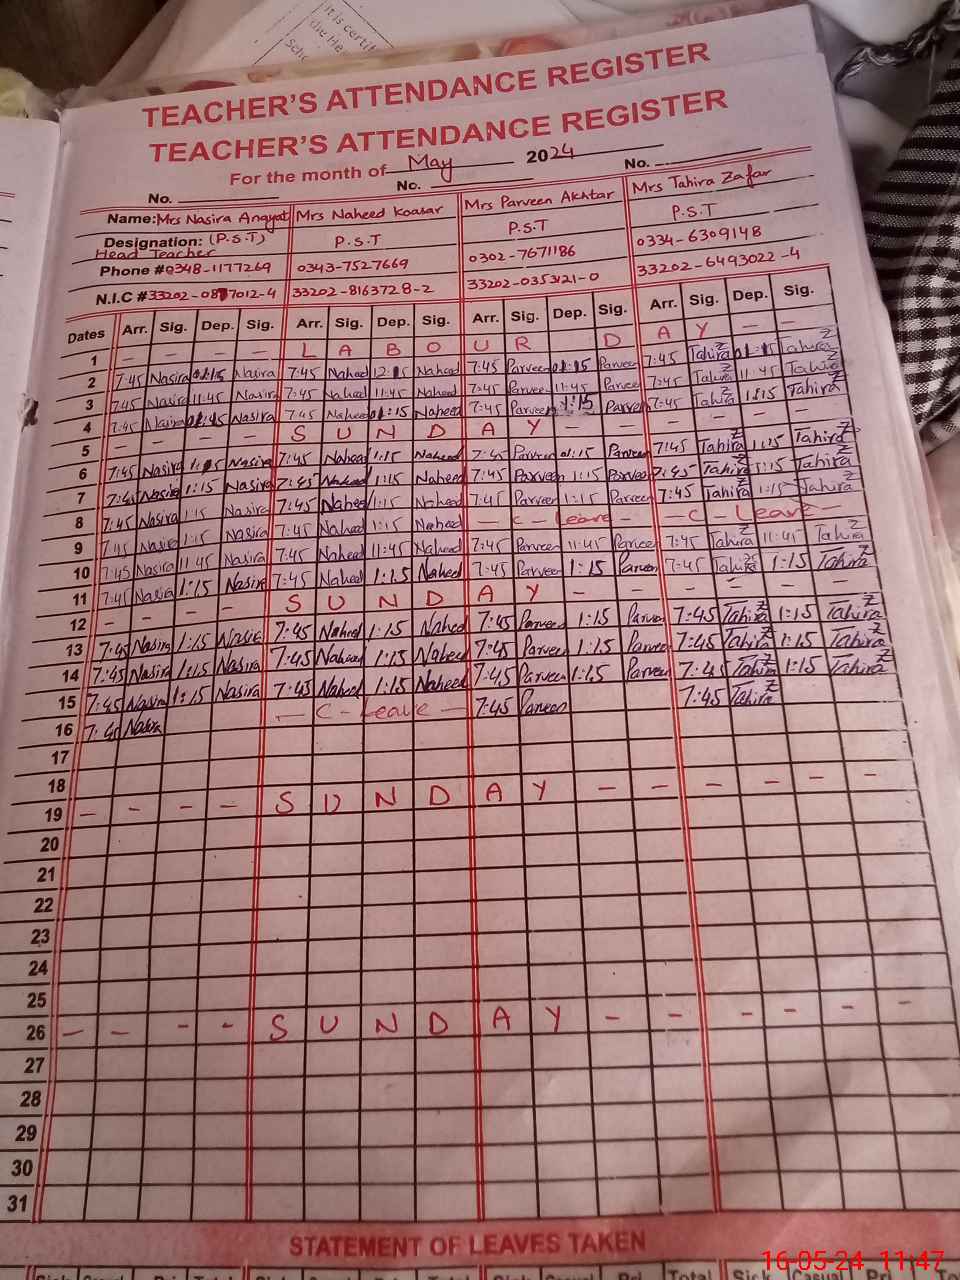 it is certif
the He
Scho
TEACHER'S ATTENDANCE REGISTER
TEACHER'S ATTENDANCE REGISTER
For the month of May 2024
No. No. No.
Name: Mrs Nasira Mrs Naheed Koasar Mrs Parveen Akhtar Mrs Tahira Zafar
Designation: (P.S.T) P.S.T P.S.T P.S.T
Head Teacher
Phone # 0348-1177269 0343-7527669 0302-7671186 0334-6309148
N.I.C # 33202-8163728-2 33202-0353121-0 33202-6493022-4
Dates Arr. Sig. Dep. Sig. Arr. Sig. Dep. Sig. Arr. Sig. Dep. Sig. Arr. Sig. Dep. Sig.
1 - - - - L A B O U R D A Y - -
2 7:45 Nasira Nasira 7:45 Naheed Naheed 7:45 Parveen Parveen 7:45 Tahira Tahira
3 7:45 Nasira 11:45 Nasira 7:45 Naheed 11:45 Naheed 7:45 Parveen 11:45 Parveen 7:45 Tahira 11:45 Tahira
4 7:45 Nasira Nasira 7:45 Naheed Naheed 7:45 Parveen Parveen 7:45 Tahira 1:15 Tahira
5 - - - - S U N D A Y - - - -
6 7:45 Nasira Nasira 7:45 Naheed 1:15 Naheed 7:45 Parveen 1:15 Parveen 7:45 Tahira 1:15 Tahira
7 7:45 Nasira 1:15 Nasira 7:45 Naheed 1:15 Naheed 7:45 Parveen 1:15 Parveen 7:45 Tahira 1:15 Tahira
8 7:45 Nasira 1:15 Nasira 7:45 Naheed 1:15 Naheed 7:45 Parveen 1:15 Parveen 7:45 Tahira 1:15 Tahira
9 7:45 Nasira 1:15 Nasira 7:45 Naheed 1:15 Naheed - C - Leave - - C - Leave -
10 7:45 Nasira 11:45 Nasira 7:45 Naheed 11:45 Naheed 7:45 Parveen 11:45 Parveen 7:45 Tahira 11:45 Tahira
11 7:45 Nasira 1:15 Nasira 7:45 Naheed 1:15 Naheed 7:45 Parveen 1:15 Parveen 7:45 Tahira 1:15 Tahira
12 - - - - S U N D A Y - - - - -
13 7:45 Nasira 1:15 Nasira 7:45 Naheed 1:15 Naheed 7:45 Parveen 1:15 Parveen 7:45 Tahira 1:15 Tahira
14 7:45 Nasira 1:15 Nasira 7:45 Naheed 1:15 Naheed 7:45 Parveen 1:15 Parveen 7:45 Tahira 1:15 Tahira
15 7:45 Nasira 1:15 Nasira 7:45 Naheed 1:15 Naheed 7:45 Parveen 1:15 Parveen 7:45 Tahira 1:15 Tahira
16 7:45 Nasira - C - Leave - 7:45 Parveen 7:45 Tahira
17
18
19 - - - - S U N D A Y - - - - - -
20
21
22
23
24
25
26 - - - - S U N D A Y - - - - - -
27
28
29
30
31
STATEMENT OF LEAVES TAKEN
16-05-24 11:47
Total Sick Casual